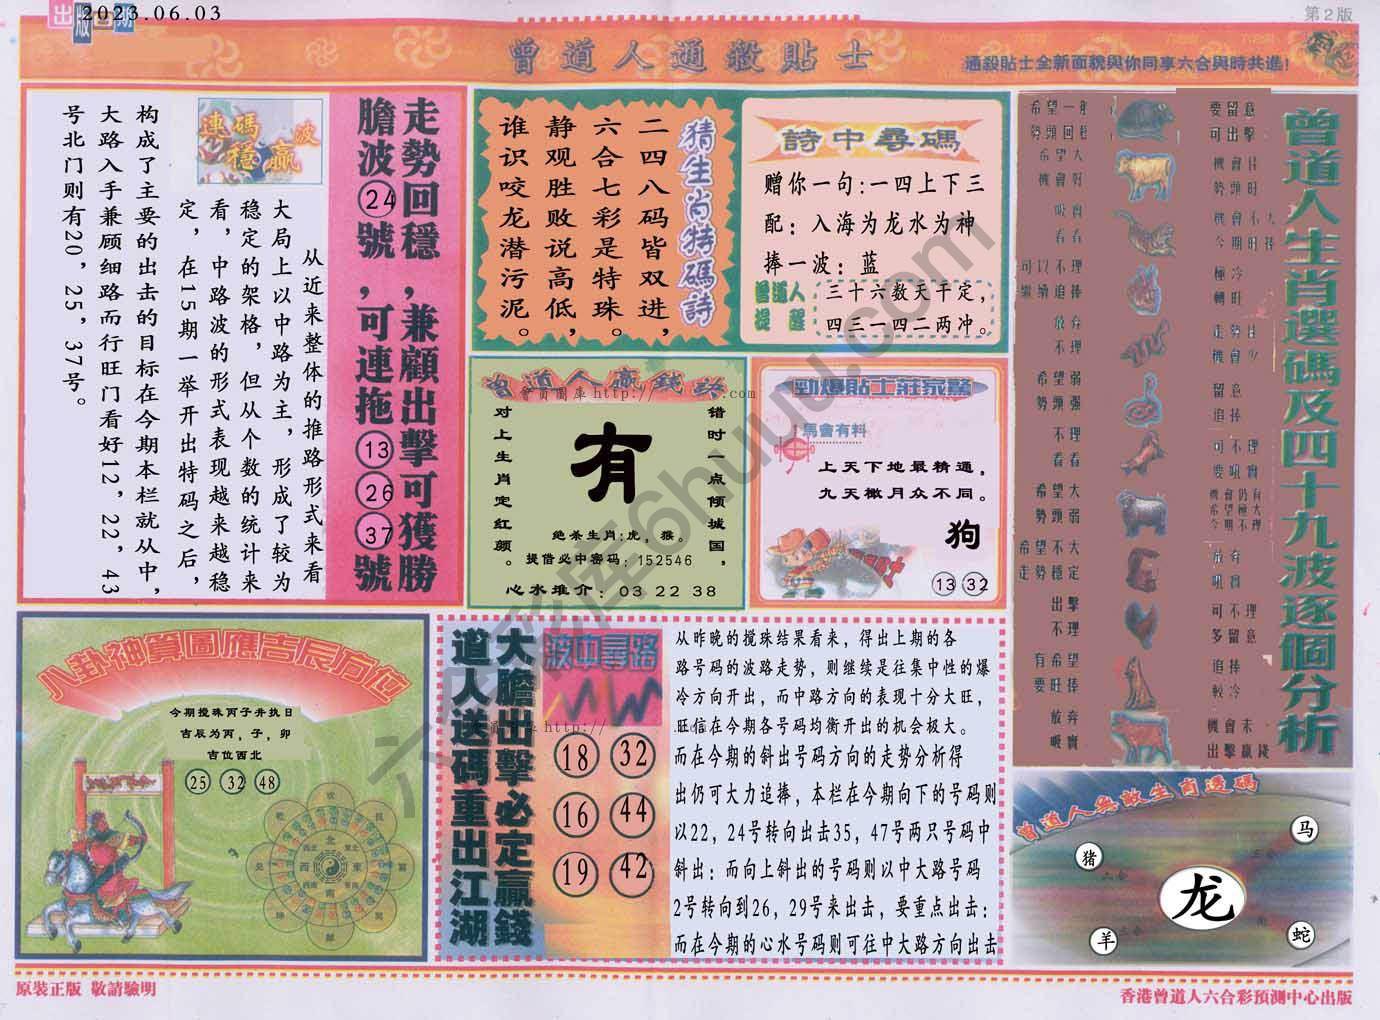 出版日期
2023.06.03
第2版
曾道人通殺貼士
通殺貼士全新面貌與你同享六合與時共進!
走勢回穩,兼顧出擊可獲勝
膽波24號,可連拖13 26 37號
連碼波
穩贏
从近来整体的推路形式来看
大局上以中路为主,形成了较为
稳定的架格,但从个数的统计来
看,中路波的形式表现越来越稳
定,在15期一举开出特码之后,
构成了主要的出击的目标在今期本栏就从中,
大路入手兼顾细路而行旺门看好12,22,43
号北门则有20,25,37号。
猜生肖特碼詩
二四八码皆双进,
六合七彩是特珠。
静观胜败说高低,
谁识咬龙潜污泥。
詩中尋碼
赠你一句:一四上下三
配:入海为龙水为神
捧一波:蓝
曾道人
提醒
三十六数天干定,
四三一四二两冲。
曾道人贏錢訣
错时一点倾城国,
对上生肖定红颜。
有
绝杀生肖:虎,猴。
提借必中密码:152546
心水推介:03 22 38
勁爆貼士莊家驚
馬會有料
上天下地最精通,
九天橄月众不同。
狗
13 32
曾道人生肖選碼及四十九波逐個分析
希望一般
勢頭回穩
要留意
可出擊
希望大
機會好
機會佳
勢頭旺
吸實
看看
機會不大
今期旺捧
可以不理
繼續追捧
極冷
轉旺
放弃
不理
走勢佳
機會少
希望弱
勢頭强
留意
追捧
不理
看看
可不理
要吼實
希望大
勢頭弱
機會仍有
希望極大
今期不理
希望不大
走勢穩定
放弃
吼實
出擊
不理
可不理
多留意
有希望
要旺捧
追捧
較冷
放弃
吸實
機會未
出擊贏錢
八卦神算圖應吉辰方位
今期搅珠丙子井执日
吉辰为丙,子,卯
吉位西北
25 32 48
大膽出擊必定贏錢
道人送碼重出江湖
波中尋路
18 32
16 44
19 42
从昨晚的搅珠结果看来,得出上期的各
路号码的波路走势,则继续是往集中性的爆
冷方向开出,而中路方向的表现十分大旺,
旺信在今期各号码均衡开出的机会极大。
而在今期的斜出号码方向的走势分析得
出仍可大力追捧,本栏在今期向下的号码则
以22,24号转向出击35,47号两只号码中
斜出:而向上斜出的号码则以中大路号码
2号转向到26,29号来出击,要重点出击:
而在今期的心水号码则可往中大路方向出击
曾道人無敵生肖透碼
马
猪
六合
龙
羊
蛇
原裝正版 敬請驗明
香港曾道人六合彩預測中心出版